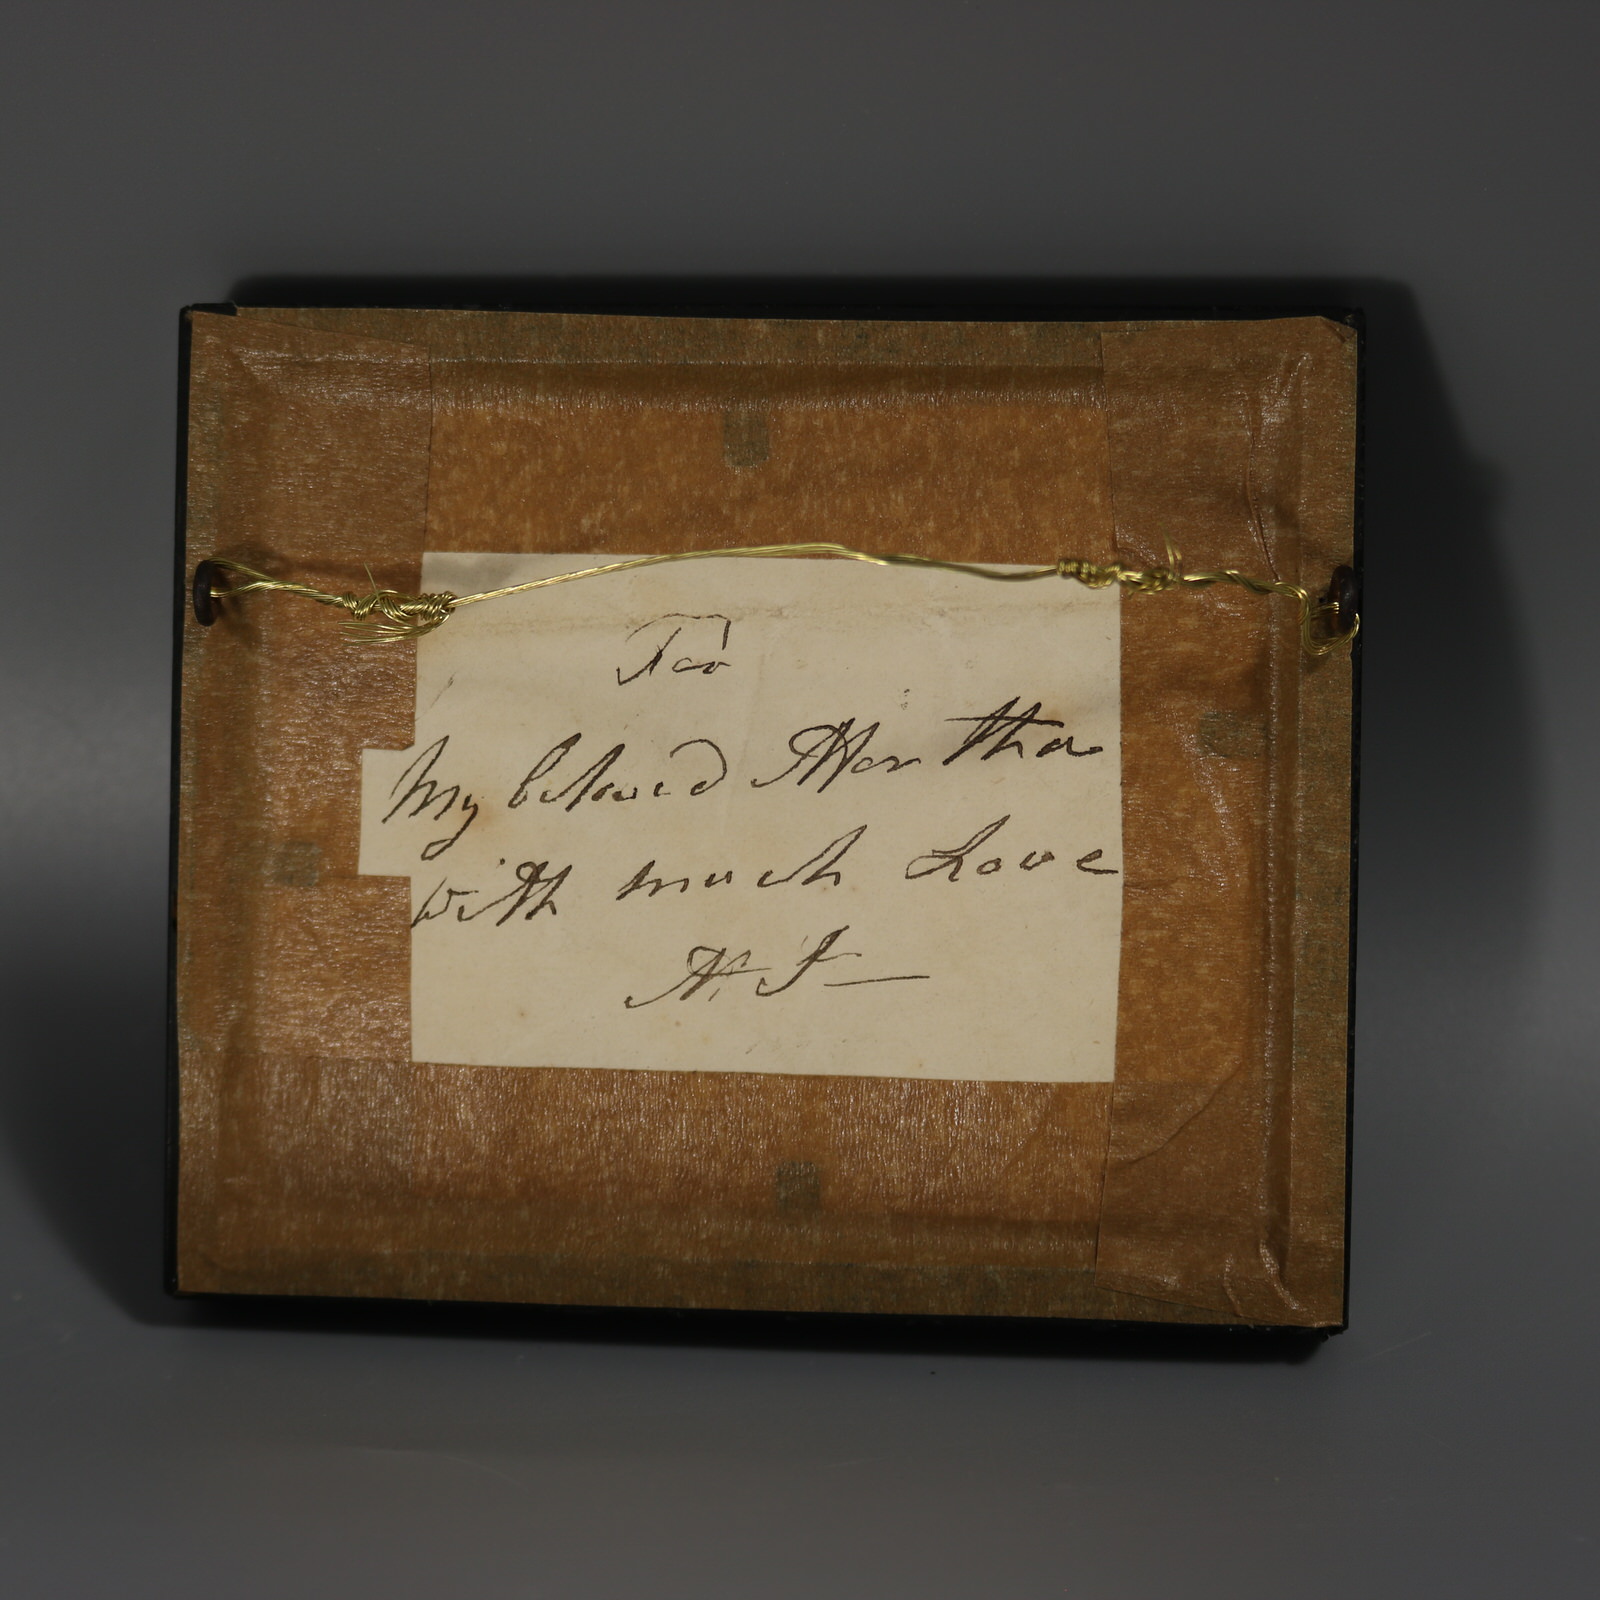 To
My beloved Martha
with much Love